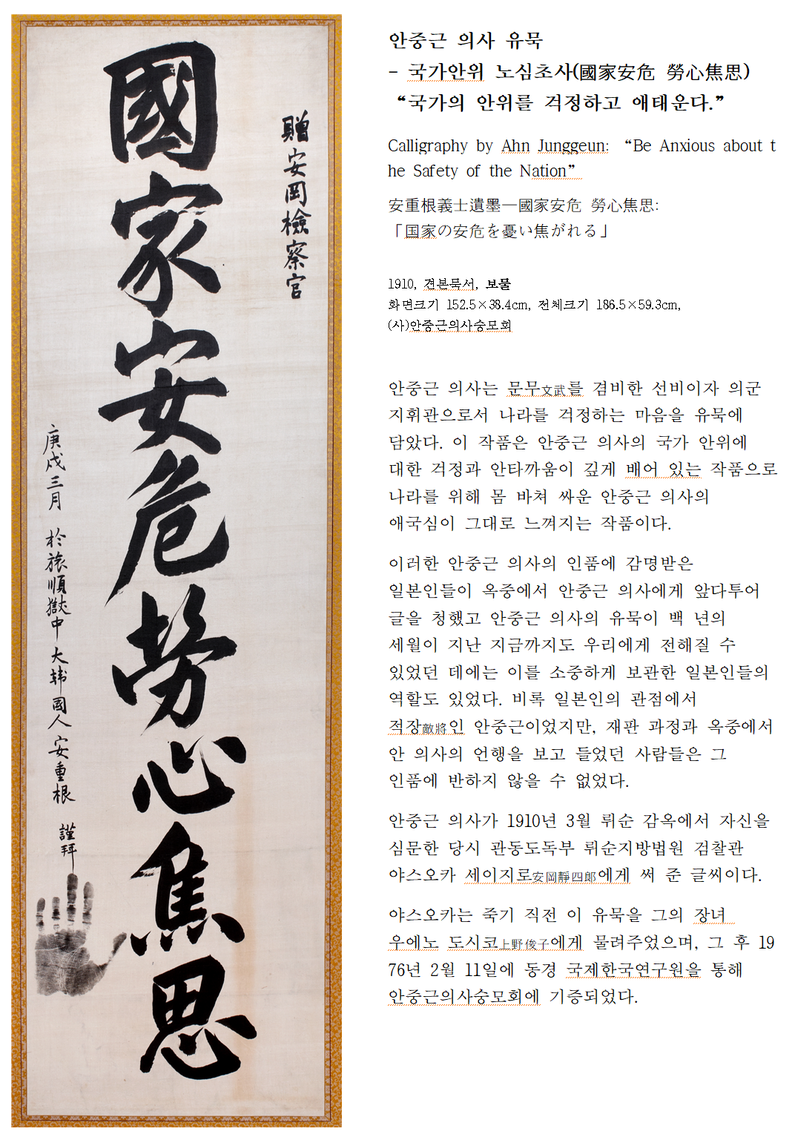 國家安危勞心焦思
贈安岡檢察官
庚戌三月 於旅順獄中 大韓國人 安重根 謹拜
안중근 의사 유묵
- 국가안위 노심초사(國家安危 勞心焦思)
“국가의 안위를 걱정하고 애태운다.”
Calligraphy by Ahn Junggeun: “Be Anxious about t
he Safety of the Nation”
安重根義士遺墨―國家安危 勞心焦思:
「国家の安危を憂い焦がれる」
1910, 견본묵서, 보물
화면크기 152.5×38.4cm, 전체크기 186.5×59.3cm,
(사)안중근의사숭모회
안중근 의사는 문무文武를 겸비한 선비이자 의군
지휘관으로서 나라를 걱정하는 마음을 유묵에
담았다. 이 작품은 안중근 의사의 국가 안위에
대한 걱정과 안타까움이 깊게 배어 있는 작품으로
나라를 위해 몸 바쳐 싸운 안중근 의사의
애국심이 그대로 느껴지는 작품이다.
이러한 안중근 의사의 인품에 감명받은
일본인들이 옥중에서 안중근 의사에게 앞다투어
글을 청했고 안중근 의사의 유묵이 백 년의
세월이 지난 지금까지도 우리에게 전해질 수
있었던 데에는 이를 소중하게 보관한 일본인들의
역할도 있었다. 비록 일본인의 관점에서
적장敵將인 안중근이었지만, 재판 과정과 옥중에서
안 의사의 언행을 보고 들었던 사람들은 그
인품에 반하지 않을 수 없었다.
안중근 의사가 1910년 3월 뤼순 감옥에서 자신을
심문한 당시 관동도독부 뤼순지방법원 검찰관
야스오카 세이지로安岡靜四郎에게 써 준 글씨이다.
야스오카는 죽기 직전 이 유묵을 그의 장녀
우에노 도시코上野俊子에게 물려주었으며, 그 후 19
76년 2월 11일에 동경 국제한국연구원을 통해
안중근의사숭모회에 기증되었다.